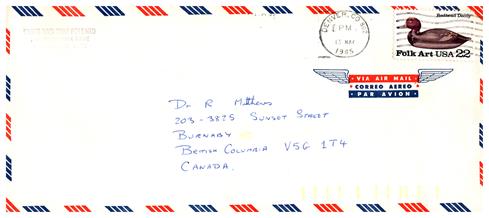 DENVER, CO 802
PM
13 MAY
1985
Redhead Decoy
Folk Art USA 22
VIA AIR MAIL
CORREO AEREO
PAR AVION
Dr R Matthews
203-3825 SUNSET STREET
BURNABY
BRITISH COLUMBIA V5G 1T4
CANADA.